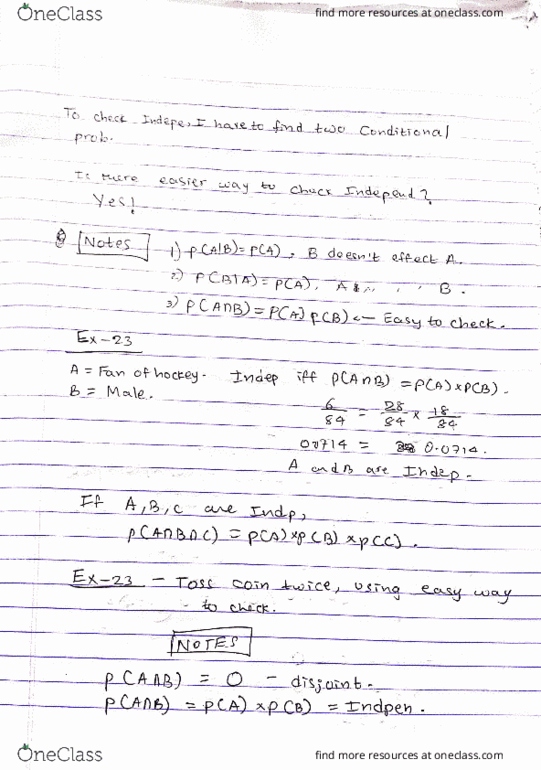 OneClass
find more resources at oneclass.com
To check Indepe, I have to find two Conditional
prob.
Is there easier way to check Independ?
Yes!
Notes
1) P(A|B)=P(A), B doesn't effect A.
2) P(B|A)=P(A), A " " " B.
3) P(A∩B)=P(A) P(B) ← Easy to check.
Ex-23
A = Fan of hockey. Indep iff P(A∩B) = P(A)×P(B).
B = Male.
6/84 = 28/84 × 18/84
0.0714 = 0.0714.
A and B are Indep.
If A, B, C are Indp,
P(A∩B∩C) = P(A)×P(B)×P(C).
Ex-23 - Toss coin twice, using easy way
to check.
NOTES
P(A∩B) = 0 - disjoint.
P(A∩B) = P(A)×P(B) = Indpen.
OneClass
find more resources at oneclass.com